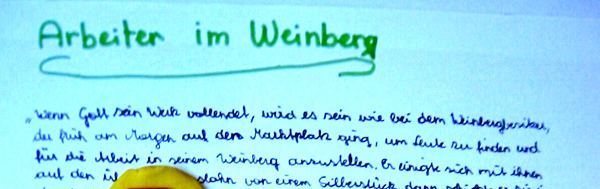 Arbeiter im Weinberg
„Wenn Gott sein Werk vollendet, wird es sein wie bei dem Weinbergbesitzer,
der früh am Morgen auf den Marktplatz ging, um Leute zu finden und
für die Arbeit in seinem Weinberg anzustellen. Er einigte sich mit ihnen
auf den lohn von einem Silberstück, dann